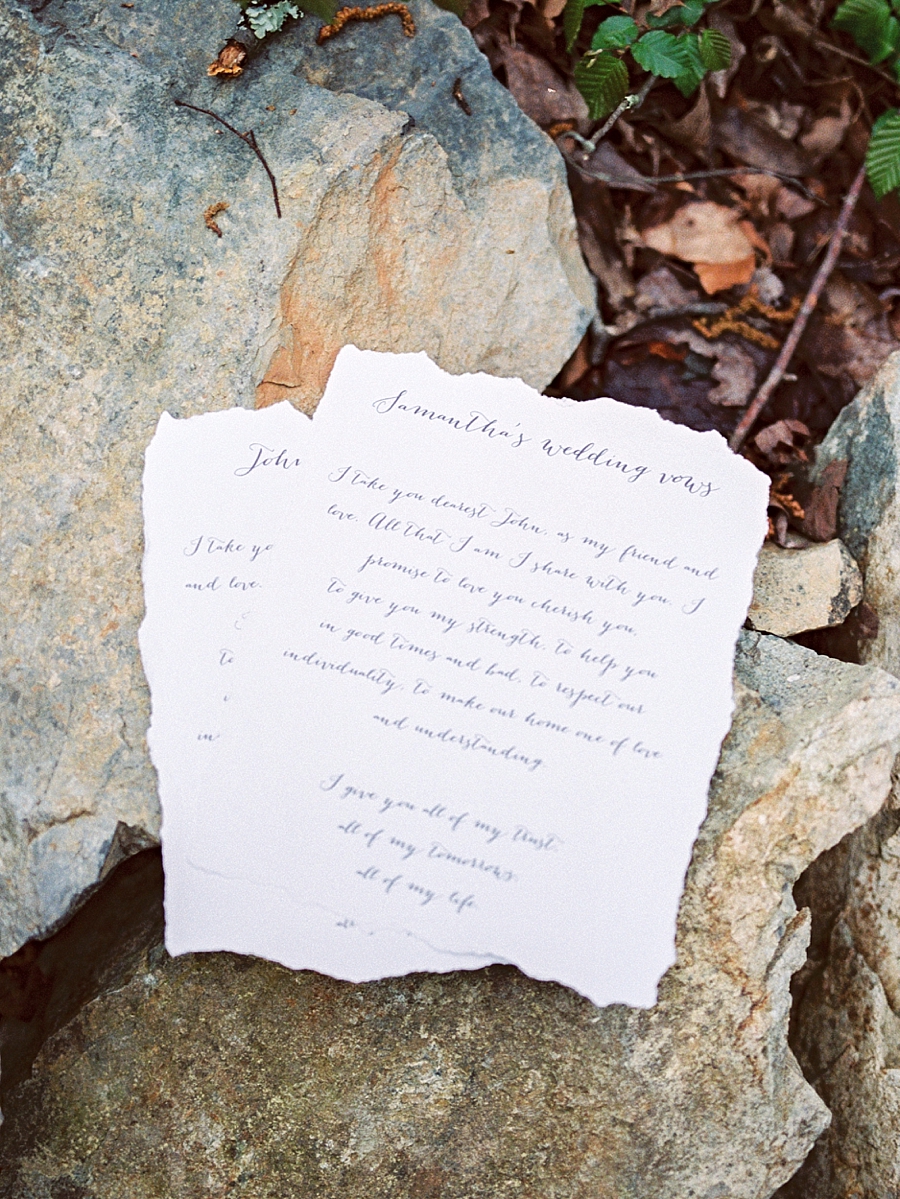 Samantha's wedding vows
I take you dearest John, as my friend and
love. All that I am I share with you. I
promise to love you cherish you,
to give you my strength, to help you
in good times and bad, to respect our
individuality, to make our home one of love
and understanding.
I give you all of my trust,
all of my tomorrows,
all of my life.
John
I take yo
and love.
to
i
in
all